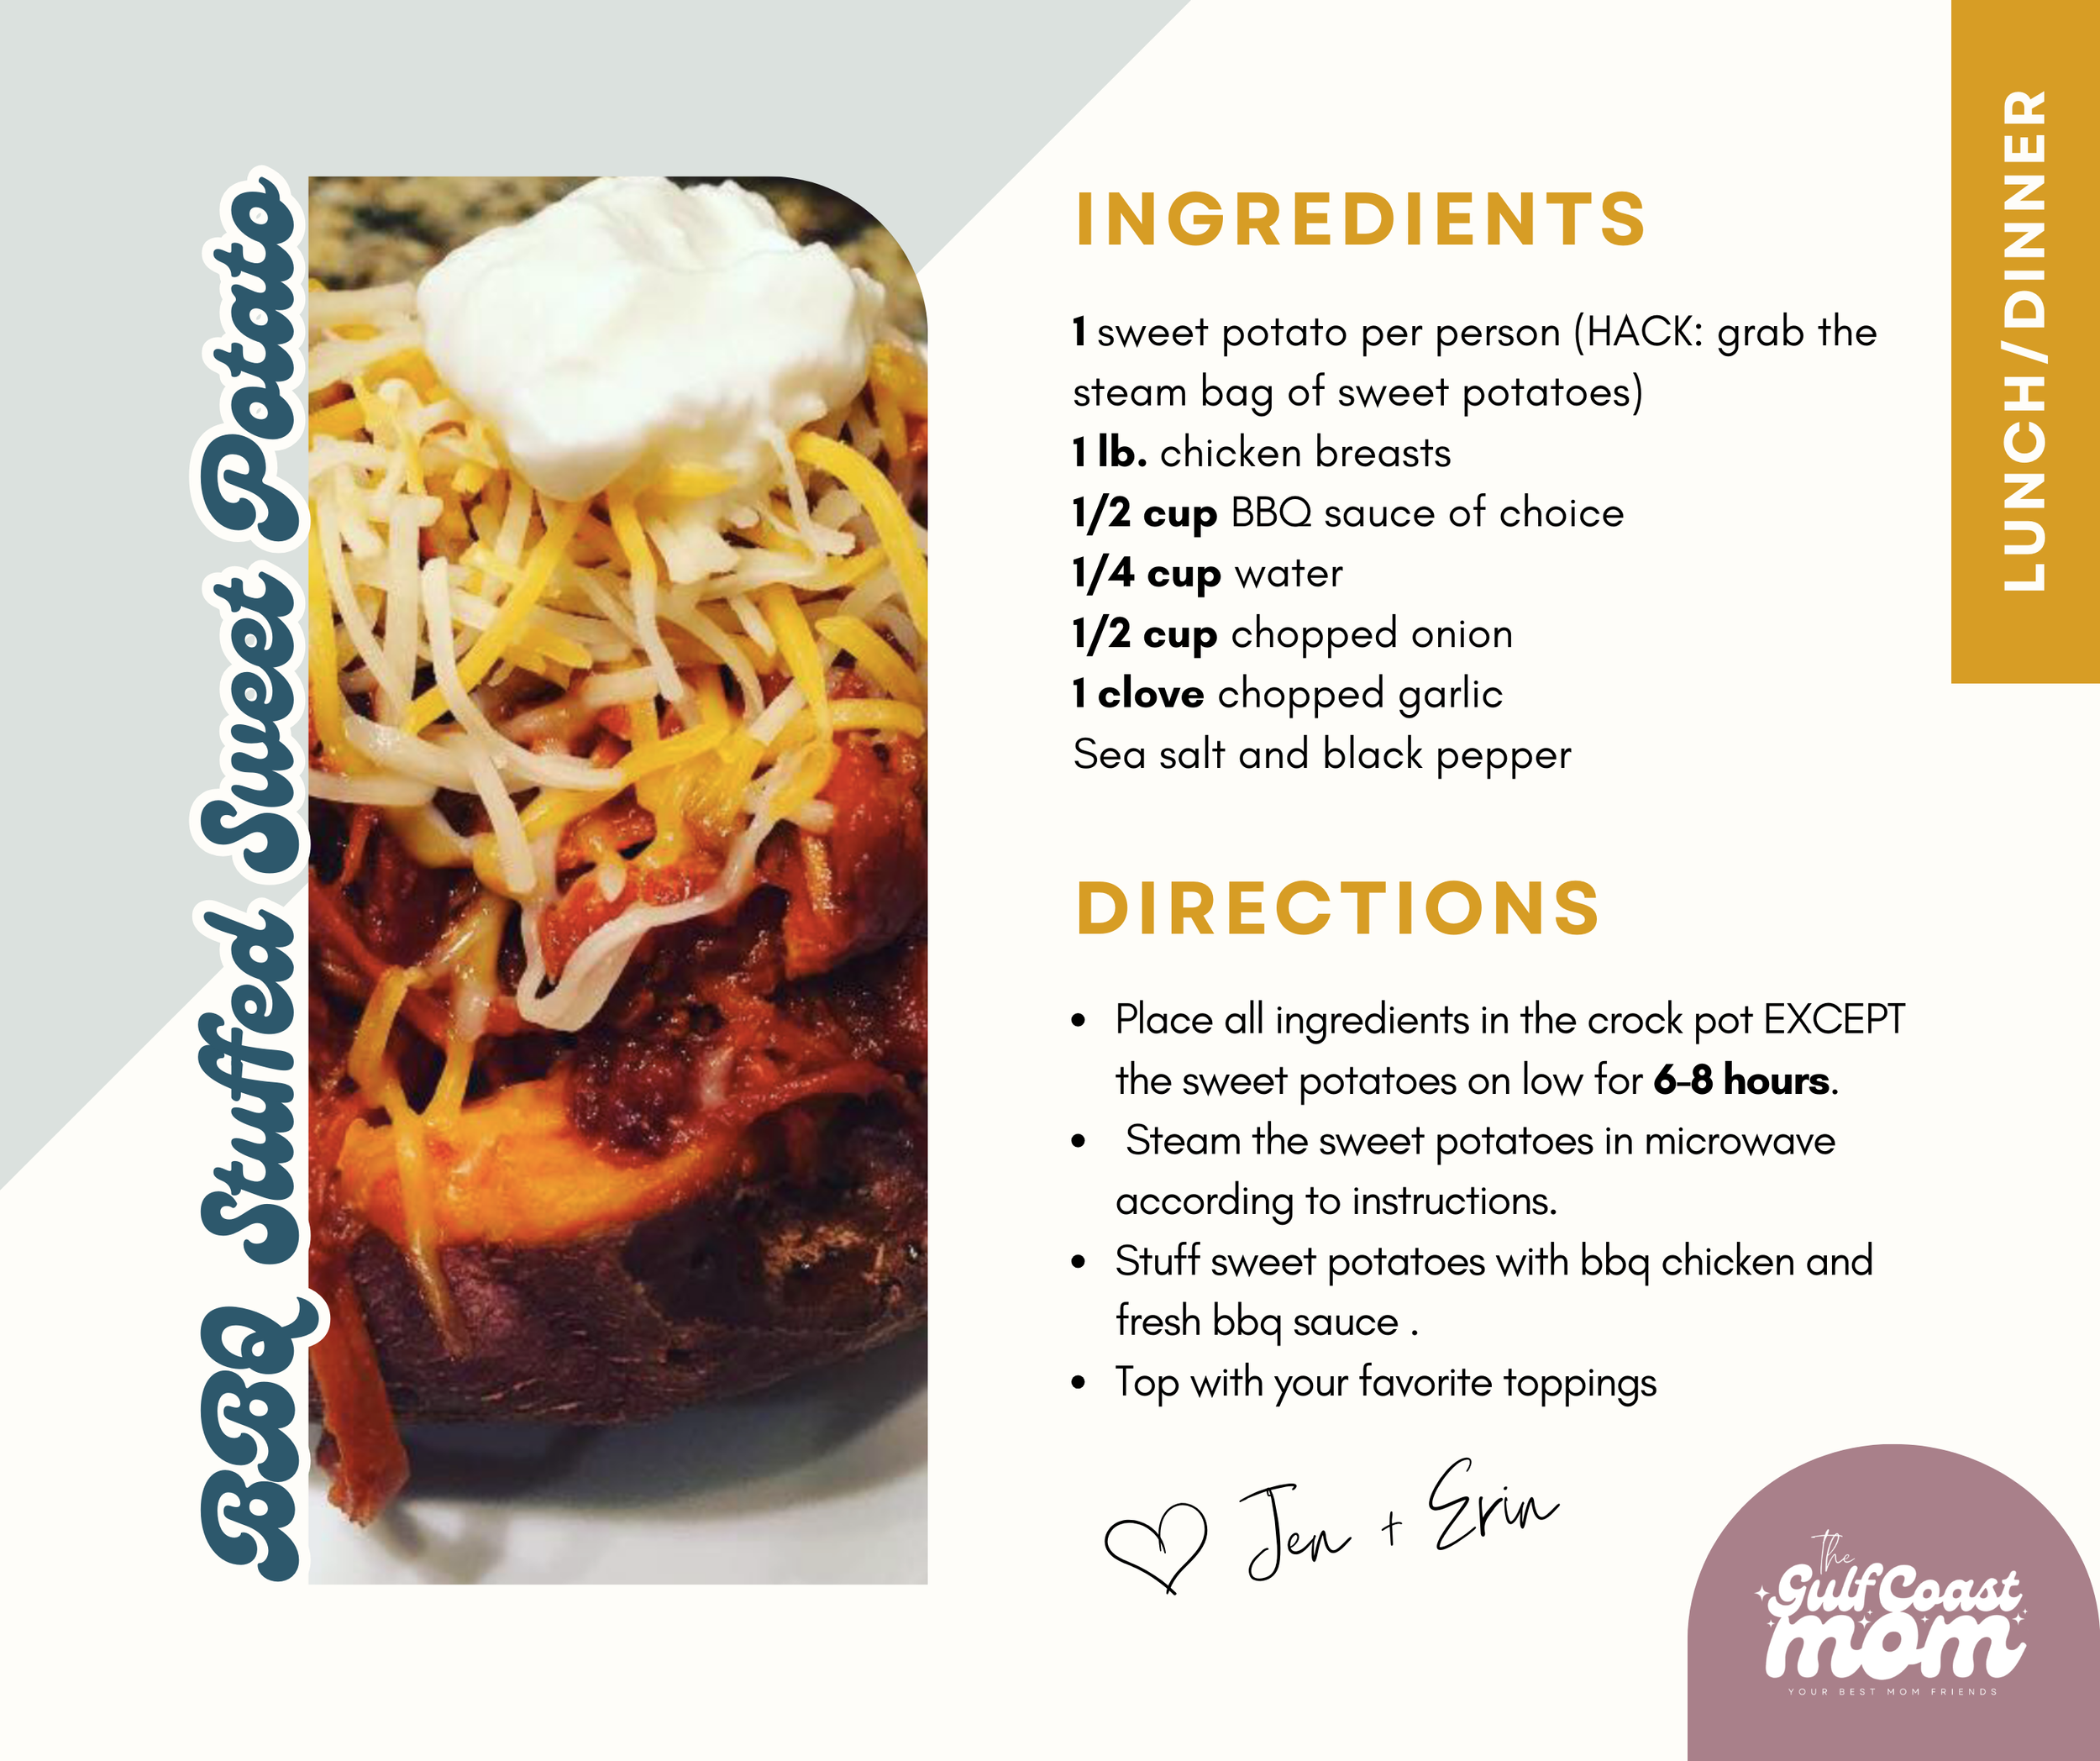 BBQ Stuffed Sweet Potato
LUNCH/DINNER
INGREDIENTS
1 sweet potato per person (HACK: grab the
steam bag of sweet potatoes)
1 lb. chicken breasts
1/2 cup BBQ sauce of choice
1/4 cup water
1/2 cup chopped onion
1 clove chopped garlic
Sea salt and black pepper
DIRECTIONS
• Place all ingredients in the crock pot EXCEPT
the sweet potatoes on low for 6-8 hours.
• Steam the sweet potatoes in microwave
according to instructions.
• Stuff sweet potatoes with bbq chicken and
fresh bbq sauce .
• Top with your favorite toppings
Jen + Erin
the
Gulf Coast
mom
YOUR BEST MOM FRIENDS